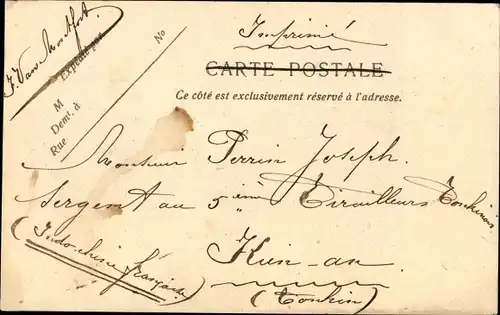 Imprimé
CARTE POSTALE
Ce côté est exclusivement réservé à l'adresse.
J. Van Montfort
Expédié par
M
Demt. à
Rue No
Monsieur Perrin Joseph.
Sergent au 5ième Tirailleurs Tonkinois
(Indo-chine française)
Kien-an
(Tonkin)